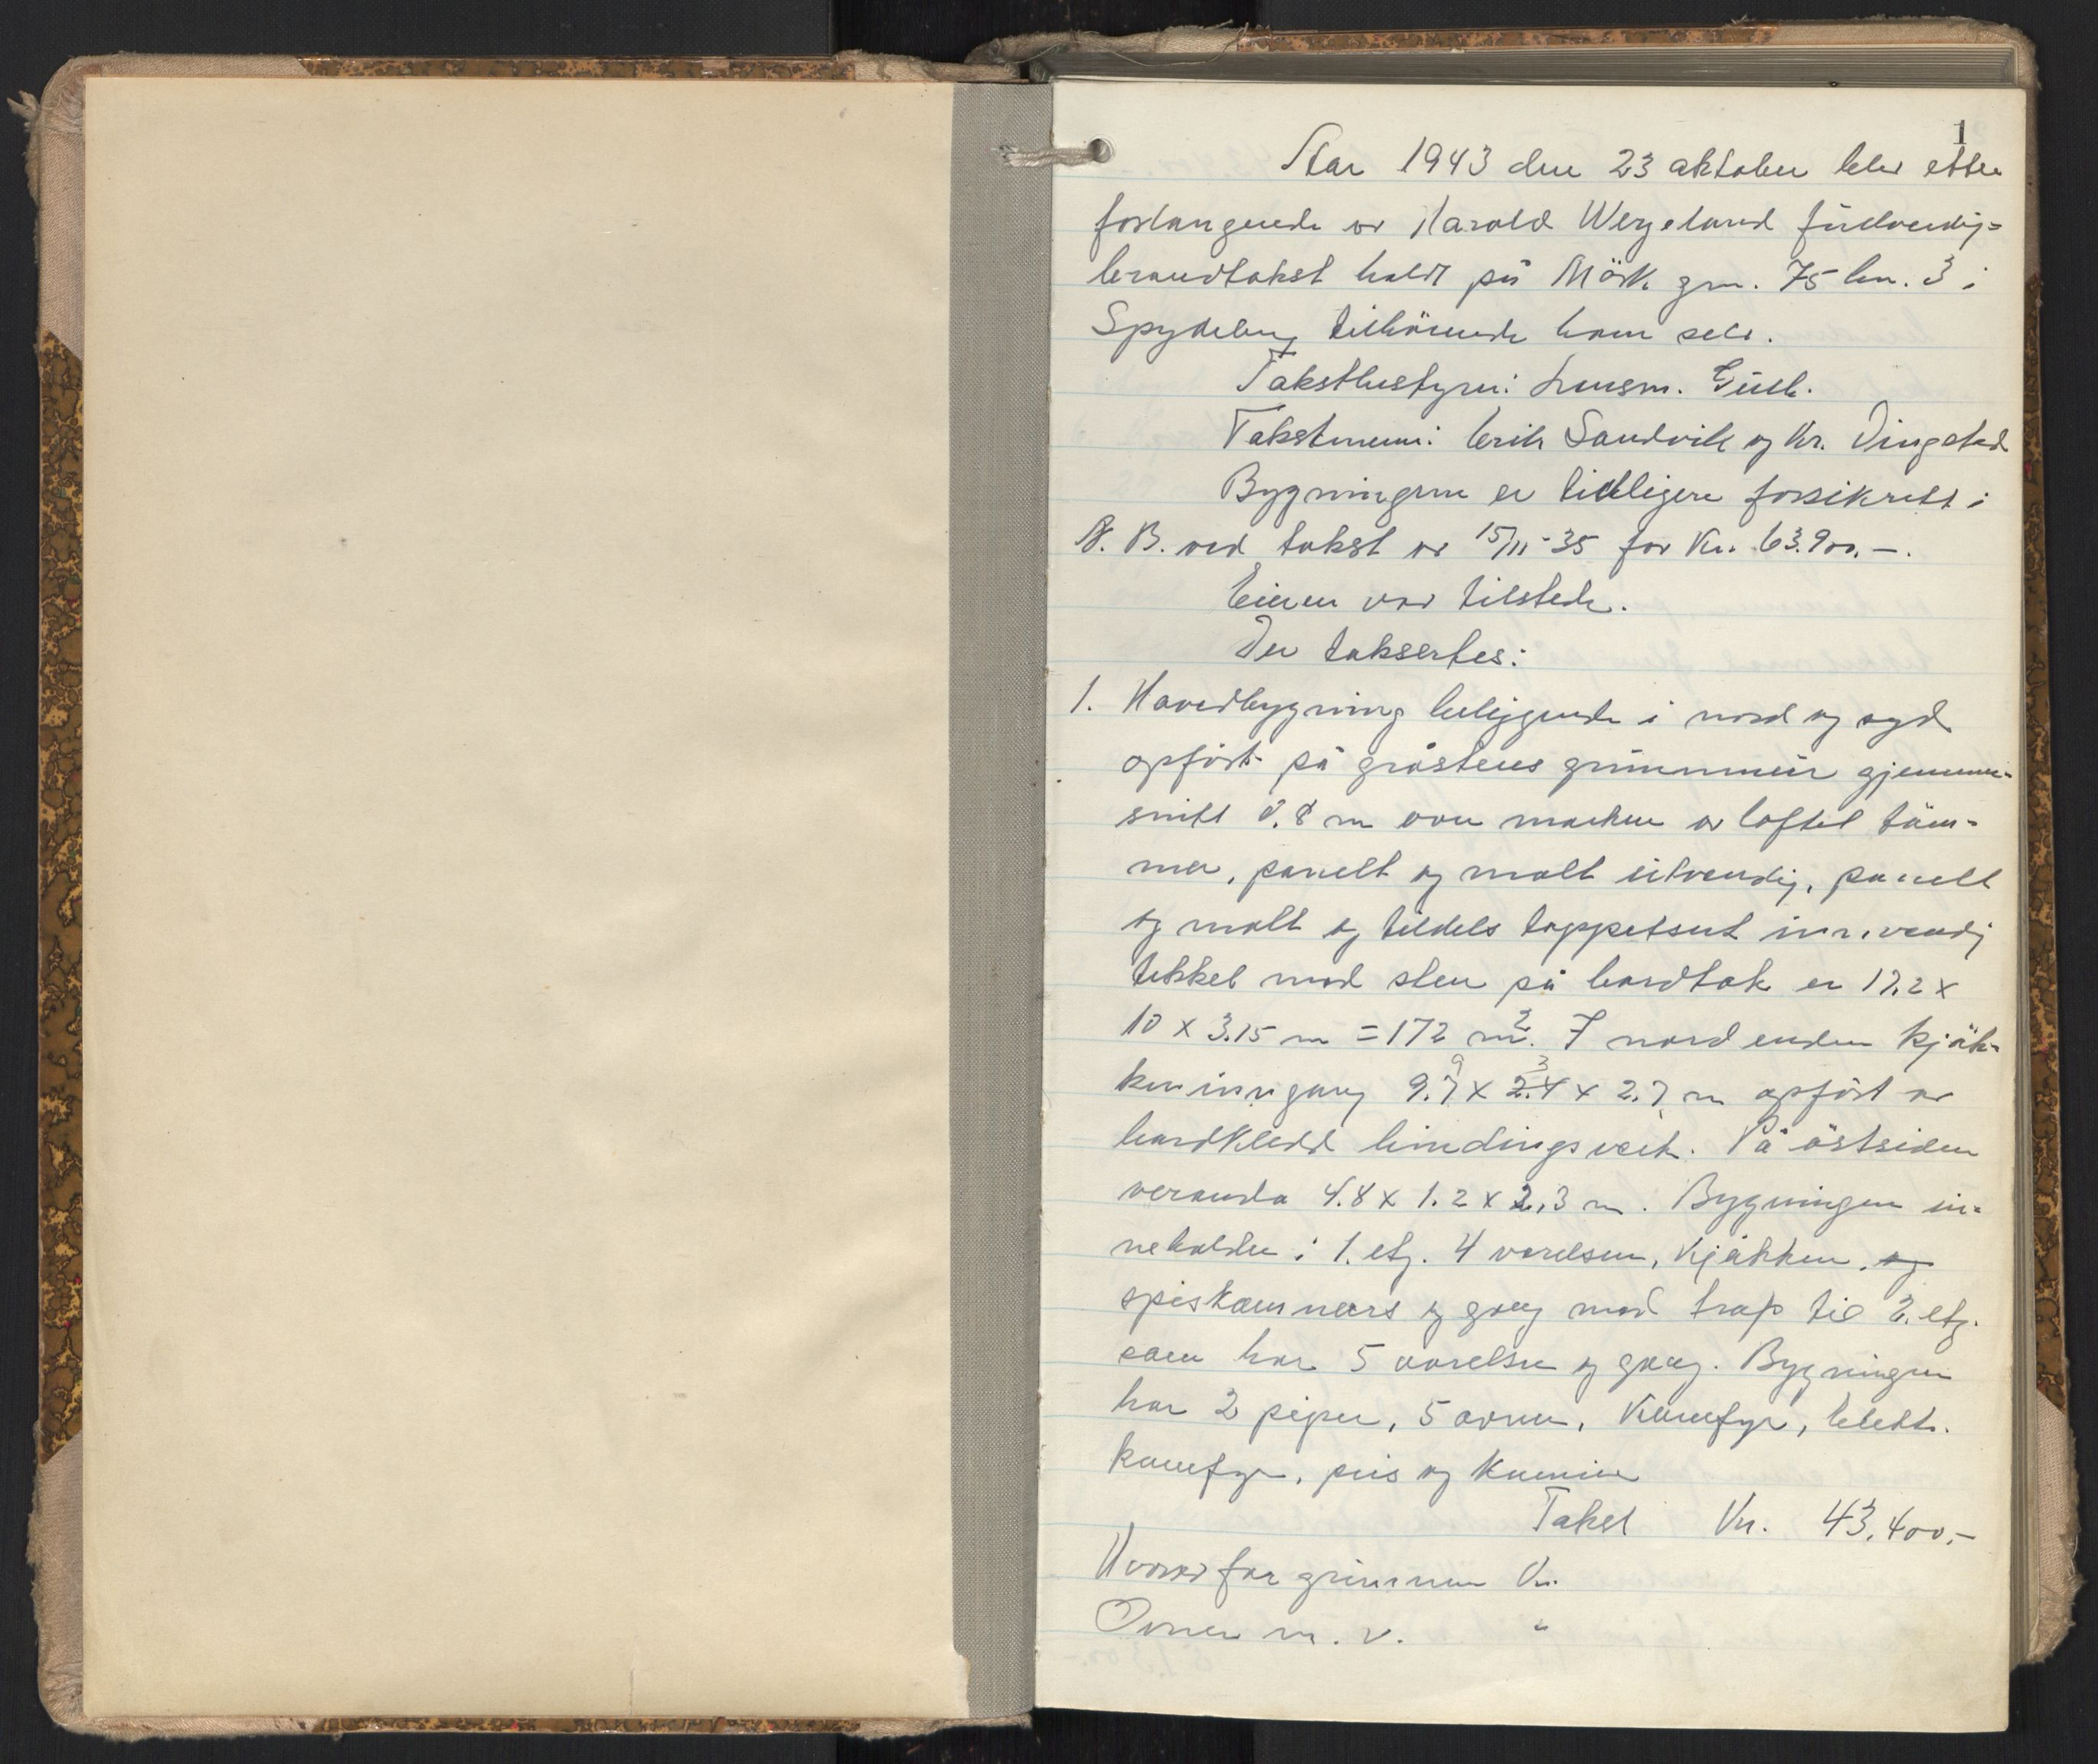 1
År 1943 den 23 oktober blev etter
forlangende av Harald Wergeland fullverdig-
branntakst holdt på Mörk gn. 75 bn. 3 i
Spydeberg tilhörende ham selv.
Takstbestyrer: Lensm.
Takstmenn: Erik Sandvik og Kr. Dingstad
Bygningene er tidligere forsikrett i
N. B. ved takst av 15/11-35 for Kr. 63.900.-.
Eieren var tilstede.
Der taksertes:
1. Hovedbygning beliggende i nord og syd
opfört på gråstens grunnmur gjennem-
snitt 0.8 m over marken av loftet töm-
mer, panelt og malt utvendig, panelt
og malt og tildels tappetsert innvendig
tekket med sten på bordtak er 17.2 x
10 x 3.15 m = 172 m2. I nord enden kjök-
keninngang 9.7 x 2.4 x 2.7 m opfört av
bordkledd bindingsverk. På östsiden
veranda 4.8 x 1.2 x 2.3 m. Bygningen in-
neholder i 1. etg. 4 værelser, kjökken, og
spiskammers og gang med trap til 2. etg.
som har 5 værelser og gang. Bygningen
har 2 piper, 5 ovner, Komfyr, elektr.
komfyr, peis og kamin
Takst Kr. 43.400,-
Hvorav for grunnmur Kr.
Ovner m. v. "